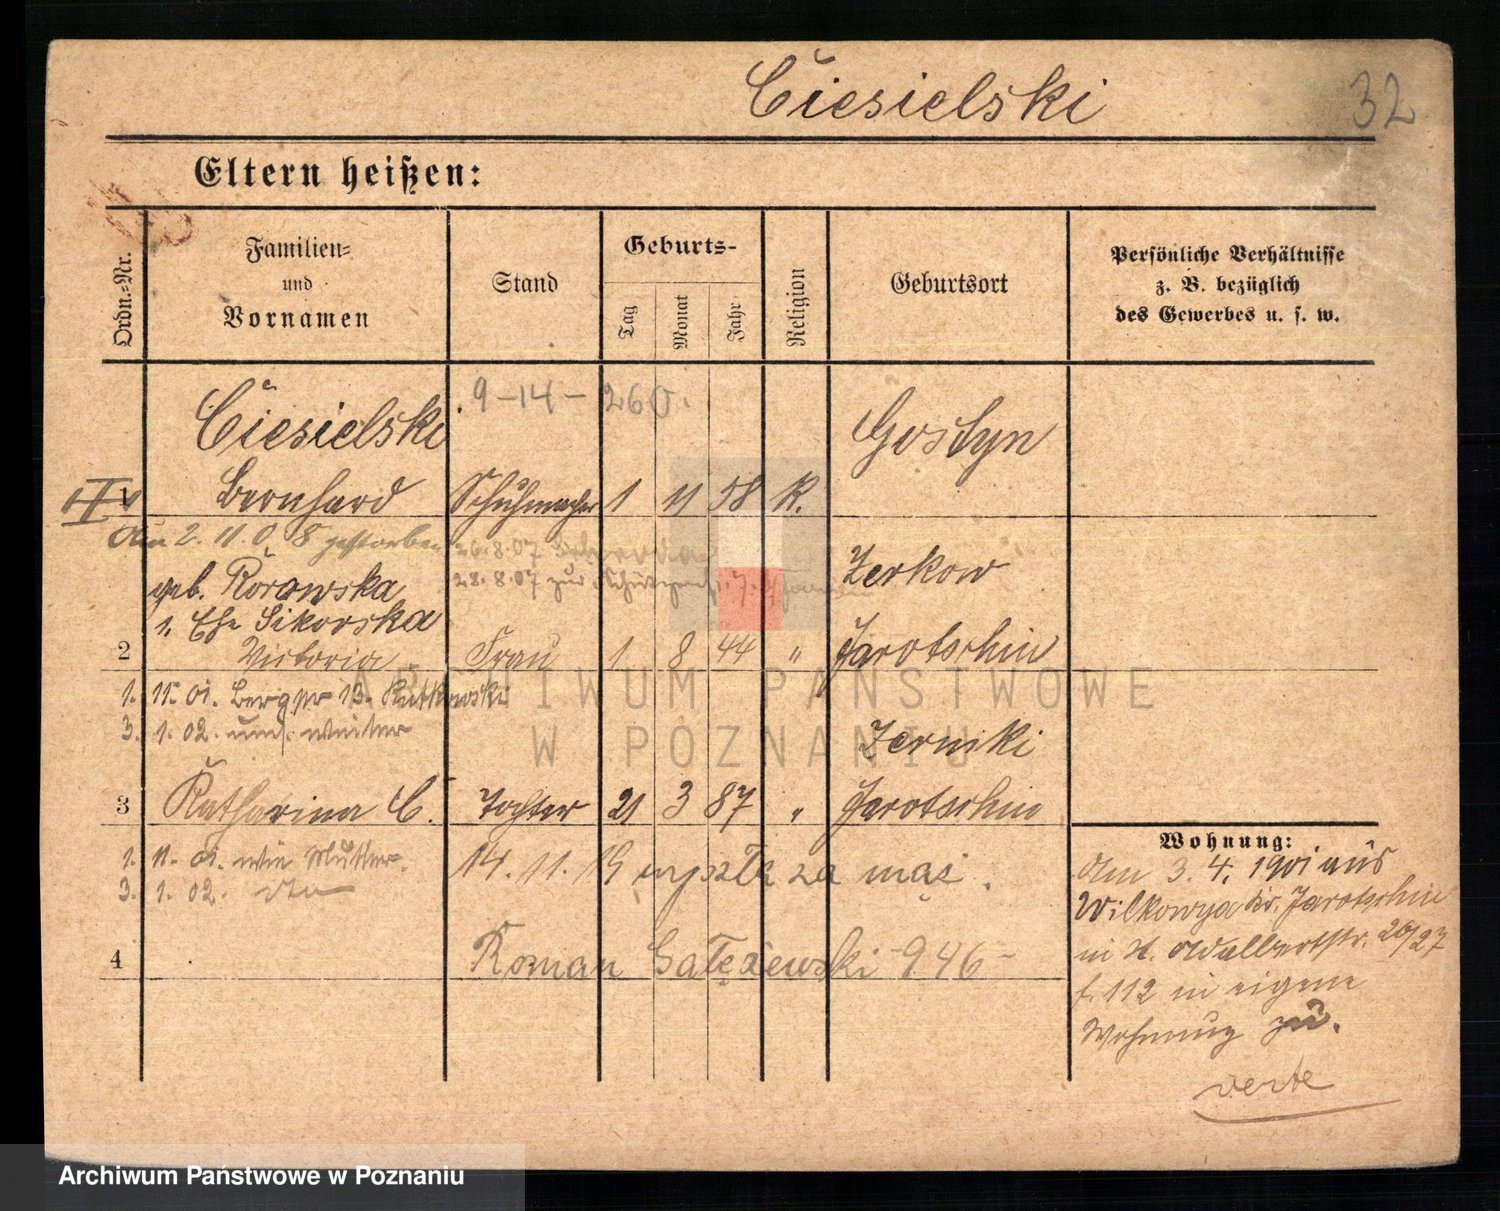 Ciesielski
32
Eltern heißen:
Ordn.-Nr.
Familien-
und
Vornamen
Stand
Geburts-
Tag
Monat
Jahr
Religion
Geburtsort
Persönliche Verhältnisse
z. B. bezüglich
des Gewerbes u. s. w.
9-14-260.
Ciesielski
Gostyn
1 Bernhard Schuhmacher 1 11 58 K.
Am 2. 11. 08 gestorben
26.8.07
28.8.07 zur
geb. Korowska
Zerkow
1. Ehe Sikorska
2 Victoria Frau 1 8 44 " Jarotschin
1. 11. 01. Bergstr 13. Rutkowski
3. 1. 02. und. weiter
Zerniki
3 Katharina C. Tochter 21 3 87 " Jarotschin
1. 11. 01. wie Mutter.
3. 1. 02. dto
14. 11. 19 wyszła za mąż.
4 Roman Gałężewski - 946 -
Wohnung:
Am 3. 4. 1901 aus
Wilkowya Kr. Jarotschin
in St. Adalbertstr. 26/27
f. 112 in eigene
Wohnung zu.
verte
ARCHIWUM PAŃSTWOWE
W POZNANIU
Archiwum Państwowe w Poznaniu